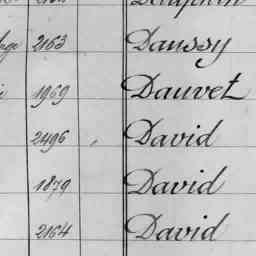 2163 Daussy
1969 Dauvet
2496 David
1879 David
2164 David